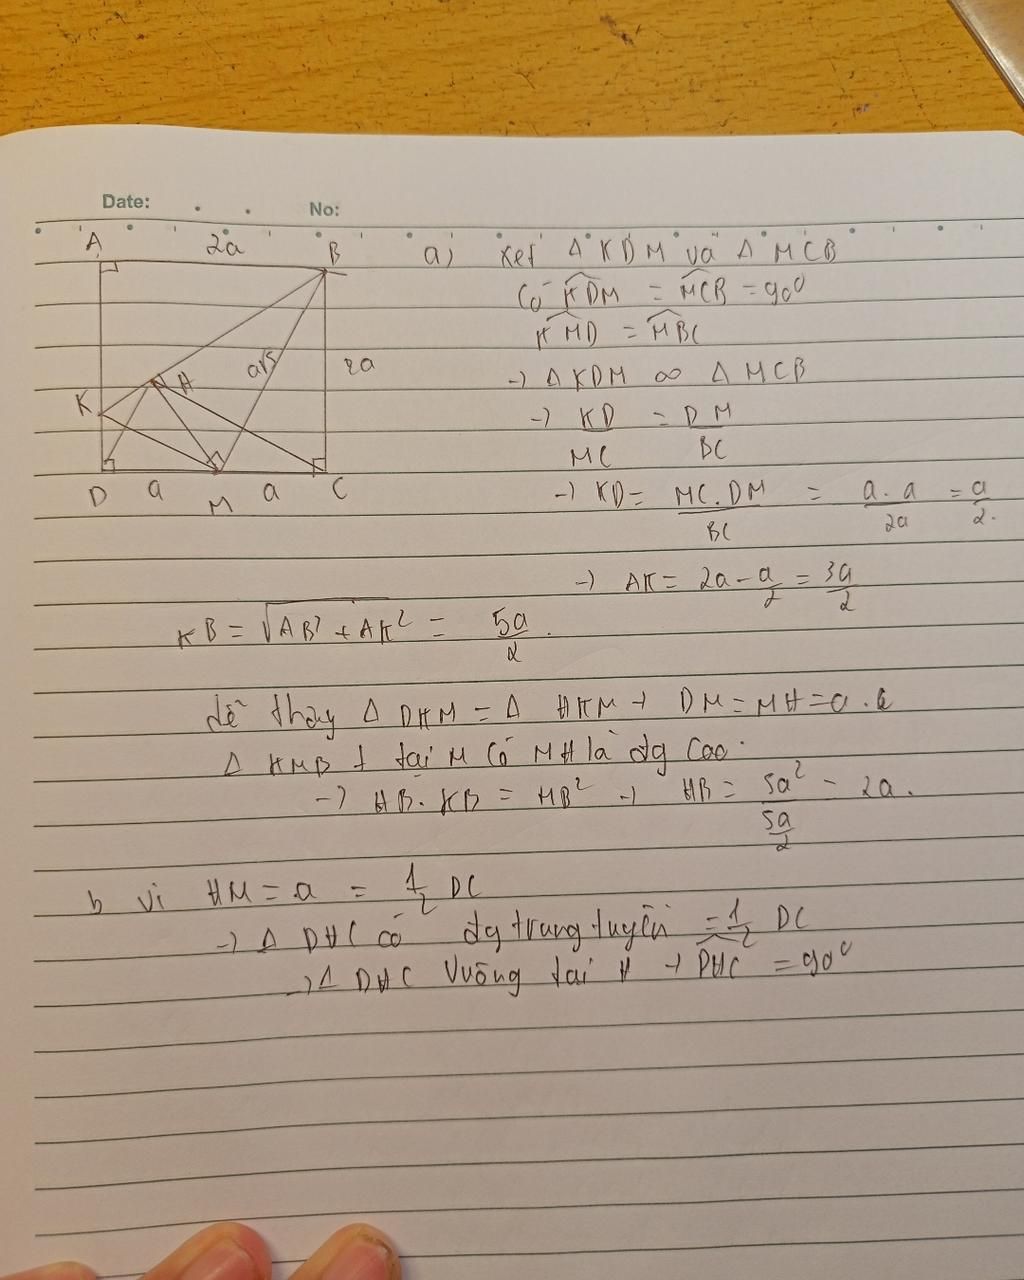 Date: No:
A 2a B
K H a√5 2a
D a M a C
a) Xét Δ KDM và Δ MCB
Có KDM = MCB = 90⁰
KMD = MBC
→ Δ KDM ∞ Δ MCB
→ KD/MC = DM/BC
→ KD = MC.DM/BC = a.a/2a = a/2.
→ AK = 2a - a/2 = 3a/2
KB = √AB² + AK² = 5a/2.
dễ thấy Δ DKM = Δ HKM → DM = MH = a.
Δ KMB ⊥ tại M Có MH là đg cao.
→ HB. KB = MB² → HB = 5a²/(5a/2) - 2a.
b vì HM = a = 1/2 DC
→ Δ DHC có đg trung tuyến = 1/2 DC
→ Δ DHC vuông tại H → DHC = 90⁰